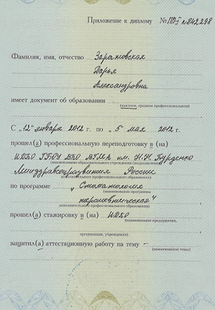 Приложение к диплому № ПП-I № 042298
Фамилия, имя, отчество
Дарья
Александровна
имеет документ об образовании
С „12" января 2012 г. по „ 5 " мая 2012г.
прошел(а) профессиональную переподготовку в (на)
ИДПО ГБОУ ВПО им. Н.Н. Бурденко
Минздравсоцразвития России
по программе „Стоматология
терапевтическая"
прошел(а) стажировку в (на) ИДПО
защитил(а) аттестационную работу на тему